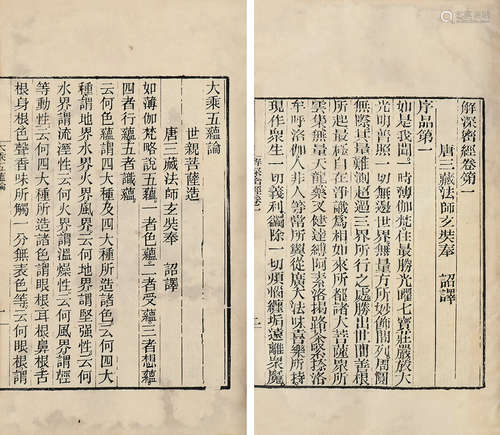 解深密經卷第一
唐三藏法師玄奘奉 詔譯
序品第一
如是我聞一時薄伽梵住最勝光曜七寶莊嚴放大
光明普照一切無邊世界無量方所妙飾間列周圓
無際其量難測超過三界所行之處勝出世間善根
所起最極自在淨識爲相如來所都諸大菩薩衆所
雲集無量天龍藥叉健達縛阿素洛揭路荼緊捺洛
牟呼洛伽人非人等常所翼從廣大法味喜樂所持
現作衆生一切義利蠲除一切煩惱纏垢遠離衆魔
解深密經卷一
大乘五蘊論
世親菩薩造
唐三藏法師玄奘奉 詔譯
如薄伽梵略說五蘊一者色蘊二者受蘊三者想蘊
四者行蘊五者識蘊
云何色蘊謂四大種及四大種所造諸色云何四大
種謂地界水界火界風界云何地界謂堅強性云何
水界謂流溼性云何火界謂溫燥性云何風界謂輕
等動性云何四大種所造諸色謂眼根耳根鼻根舌
根身根色聲香味所觸一分無表色等云何眼根謂
大乘五蘊論